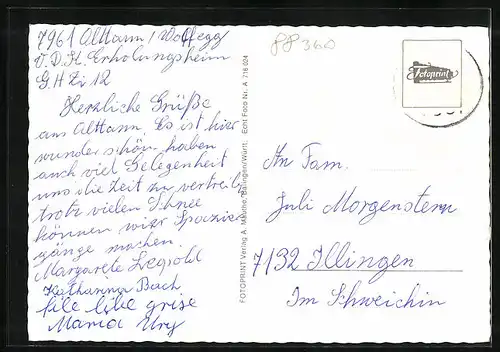 7961 Alttann / Wolfegg
V.D.K. Erholungsheim
G.H Zi 12
Herzliche Grüße
aus Alttann. Es ist hier
wunder schön, haben
auch viel Gelegenheit
uns die Zeit zu vertreib
trotz vielen Schnee
können wir Spazier
gänge machen.
Margarete Leopold
Katharina Bach
file libe grise
Maria Ury
FOTOPRINT Verlag A. Balingen/Württ. Echt Foto Nr. A 718 024
88 360
Fotoprint
An Fam.
Juli Morgenstern
7132 Illingen
Im Schweichin